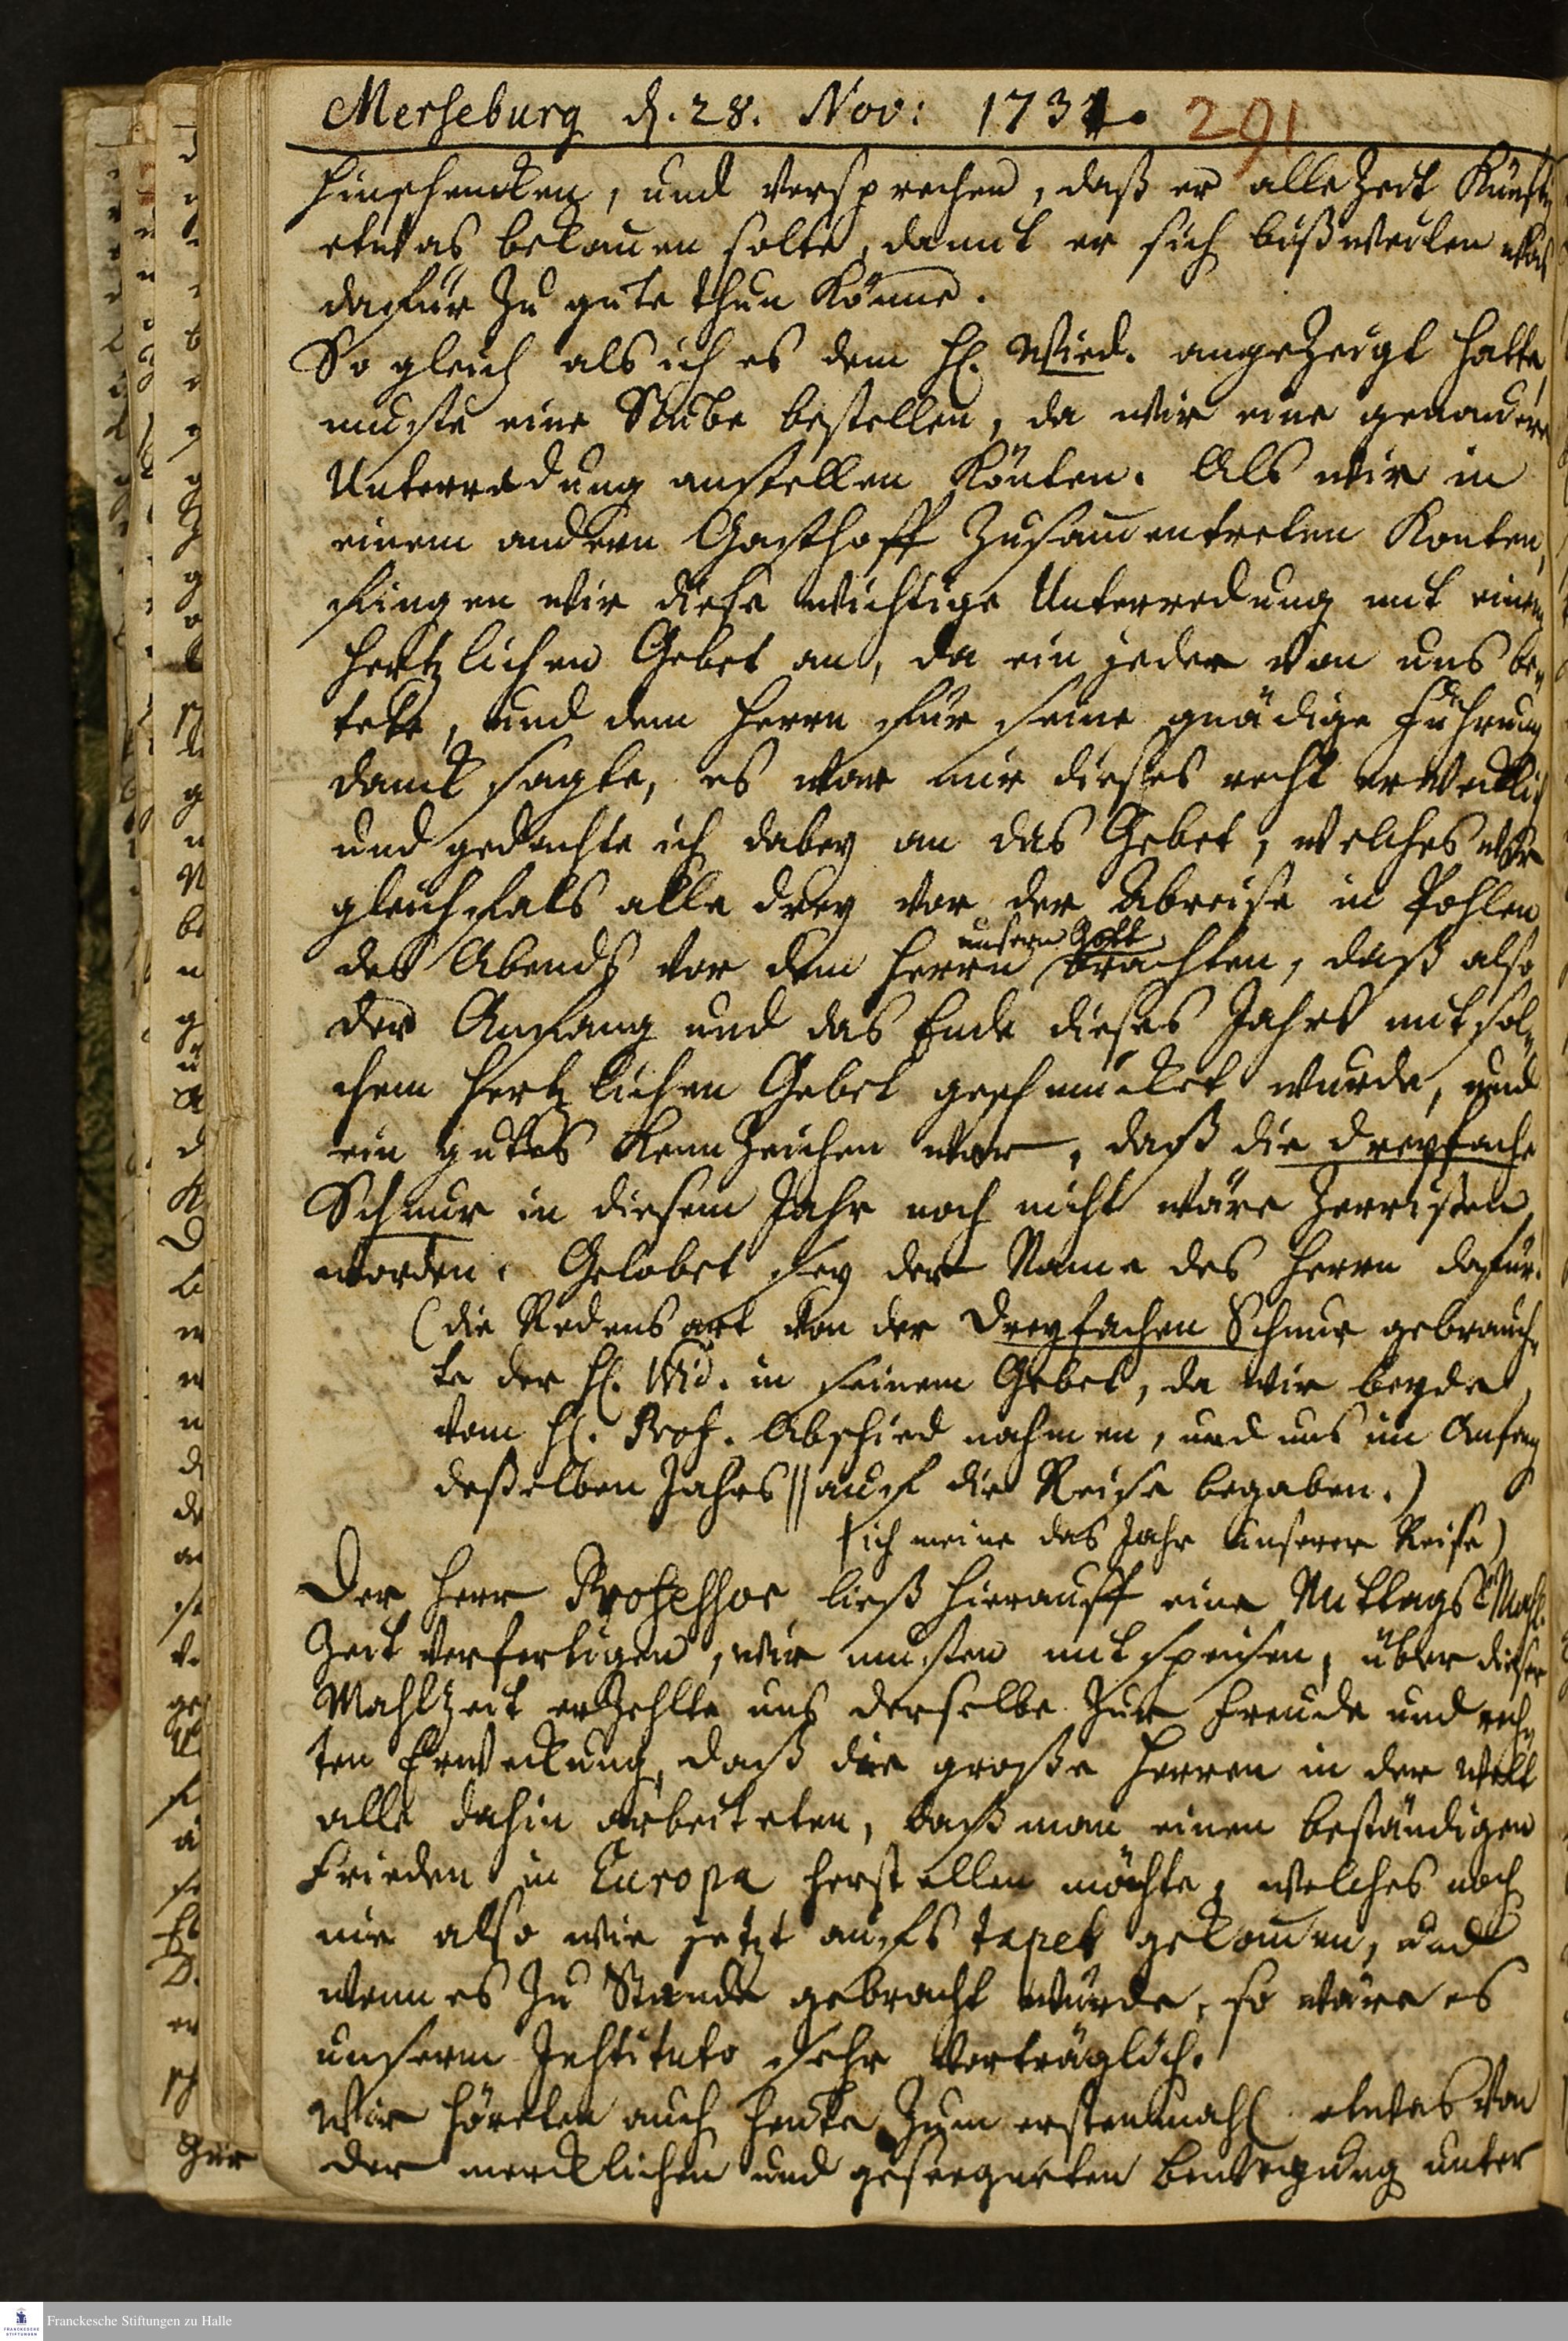 Merseburg d. 28. Nov: 1731. 291
hinschencken, und versprechen, daß er alle Zeit Künftig
etwas bekom̄en solte, damit er sich bißweilen was
dafür zu gute thun Könne.
So gleich als ich es dem H. Wid. angezeigt hatte,
muste eine Stube bestellen, da wir eine genauere
Unterredung anstellen Könten. Als wir in
einem andern Gasthoff zusam̄entreten Konten,
fingen wir diese wichtige Unterredung mit einem
hertzlichen Gebet an, da ein jeder von uns be-
tete, und dem Herrn für seine gnädige Führung
danck sagte, es war mir dieses recht erwecklich
und gedachte ich dabey an das Gebet, welches wir
gleichfals alle drey vor der Abreise in Pohlen
unsern Gott
des Abends vor dem Herrn brachten, daß also
der Anfang und das Ende dieses Jahrs mit sol-
chem hertzlichen Gebet geschmücket wurde, und
ein gutes Kennzeichen war, daß die dreyfache
Schnur in diesem Jahr noch nicht wäre zerrissen
worden. Gelobet sey der Name des Herrn dafür.
(die Redensart von der dreyfachen Schnur gebrauch-
te der H. Wid. in seinem Gebet, da wir beyde
vom H. Prof. Abschied nahmen, und uns im Anfang
deßelben Jahrs || auf die Reise begaben.)
(ich meine das Jahr unserer Reise)
Der Herr Professor ließ hierauff eine Mittags Mahl-
zeit verfertigen, wir musten mit speisen, über dieser
Mahlzeit erzehlte uns derselbe zur Freude und rech-
ten Erweckung, daß die große Herren in der Welt
alle dahin arbeiteten, daß man einen beständigen
Frieden in Europa herstellen möchte, welches noch
nie also wie jetzt aufs tapet gekom̄en, und
wenn es zu Stande gebracht würde, so wäre es
unserm Instituto sehr verträglich.
Wir höreten auch heute zum erstenmahl etwas von
der mercklichen und geseegneten bewegung unter